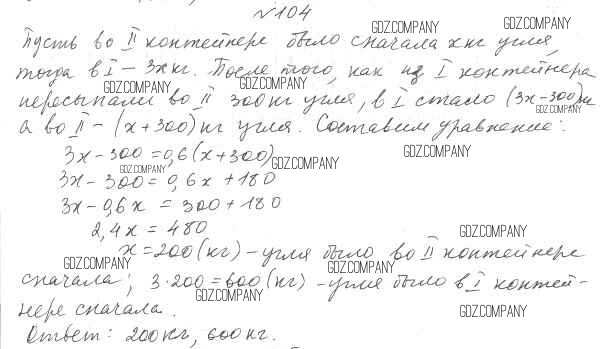 №104
Пусть во II контейнере было сначала x кг угля,
тогда в I – 3x кг. После того, как из I контейнера
пересыпали во II 300 кг угля, в I стало (3x-300)кг
а во II – (x+300) кг угля. Составим уравнение:
3x-300=0,6(x+300)
3x-300=0,6x+180
3x-0,6x=300+180
2,4x=480
x=200(кг) – угля было во II контейнере
сначала; 3·200=600(кг) – угля было в I контей-
нере сначала.
Ответ: 200кг, 600кг.
GDZ.COMPANY
GDZ.COMPANY
GDZ.COMPANY
GDZ.COMPANY
GDZ.COMPANY
GDZ.COMPANY
GDZ.COMPANY
GDZ.COMPANY
GDZ.COMPANY
GDZ.COMPANY
GDZ.COMPANY
GDZ.COMPANY
GDZ.COMPANY